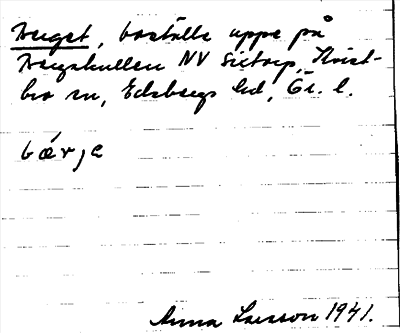 Berget, boställe uppe på
Bergskullen NV Sirtorp, Kvist-
bro sn, Edsbergs hd, Ör. l.
bærje
Anna Larsson 1941.